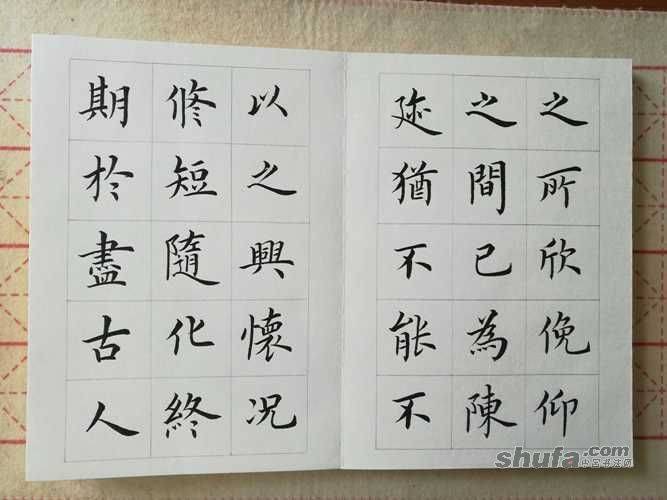 之所欣俛仰
之間已為陳
迹猶不能不
以之興懷况
修短隨化終
期於盡古人
shufa.com
中国书法网